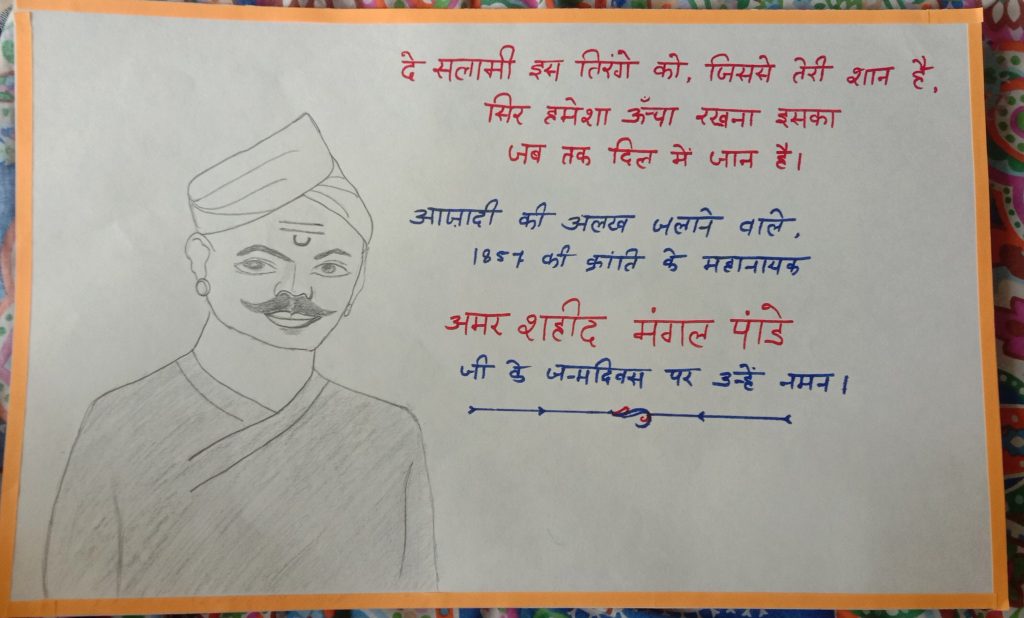 दे सलामी इस तिरंगे को, जिससे तेरी शान है,
सिर हमेशा ऊँचा रखना इसका
जब तक दिल में जान है।
आज़ादी की अलख जलाने वाले,
1857 की क्रांति के महानायक
अमर शहीद मंगल पांडे
जी के जन्मदिवस पर उन्हें नमन।